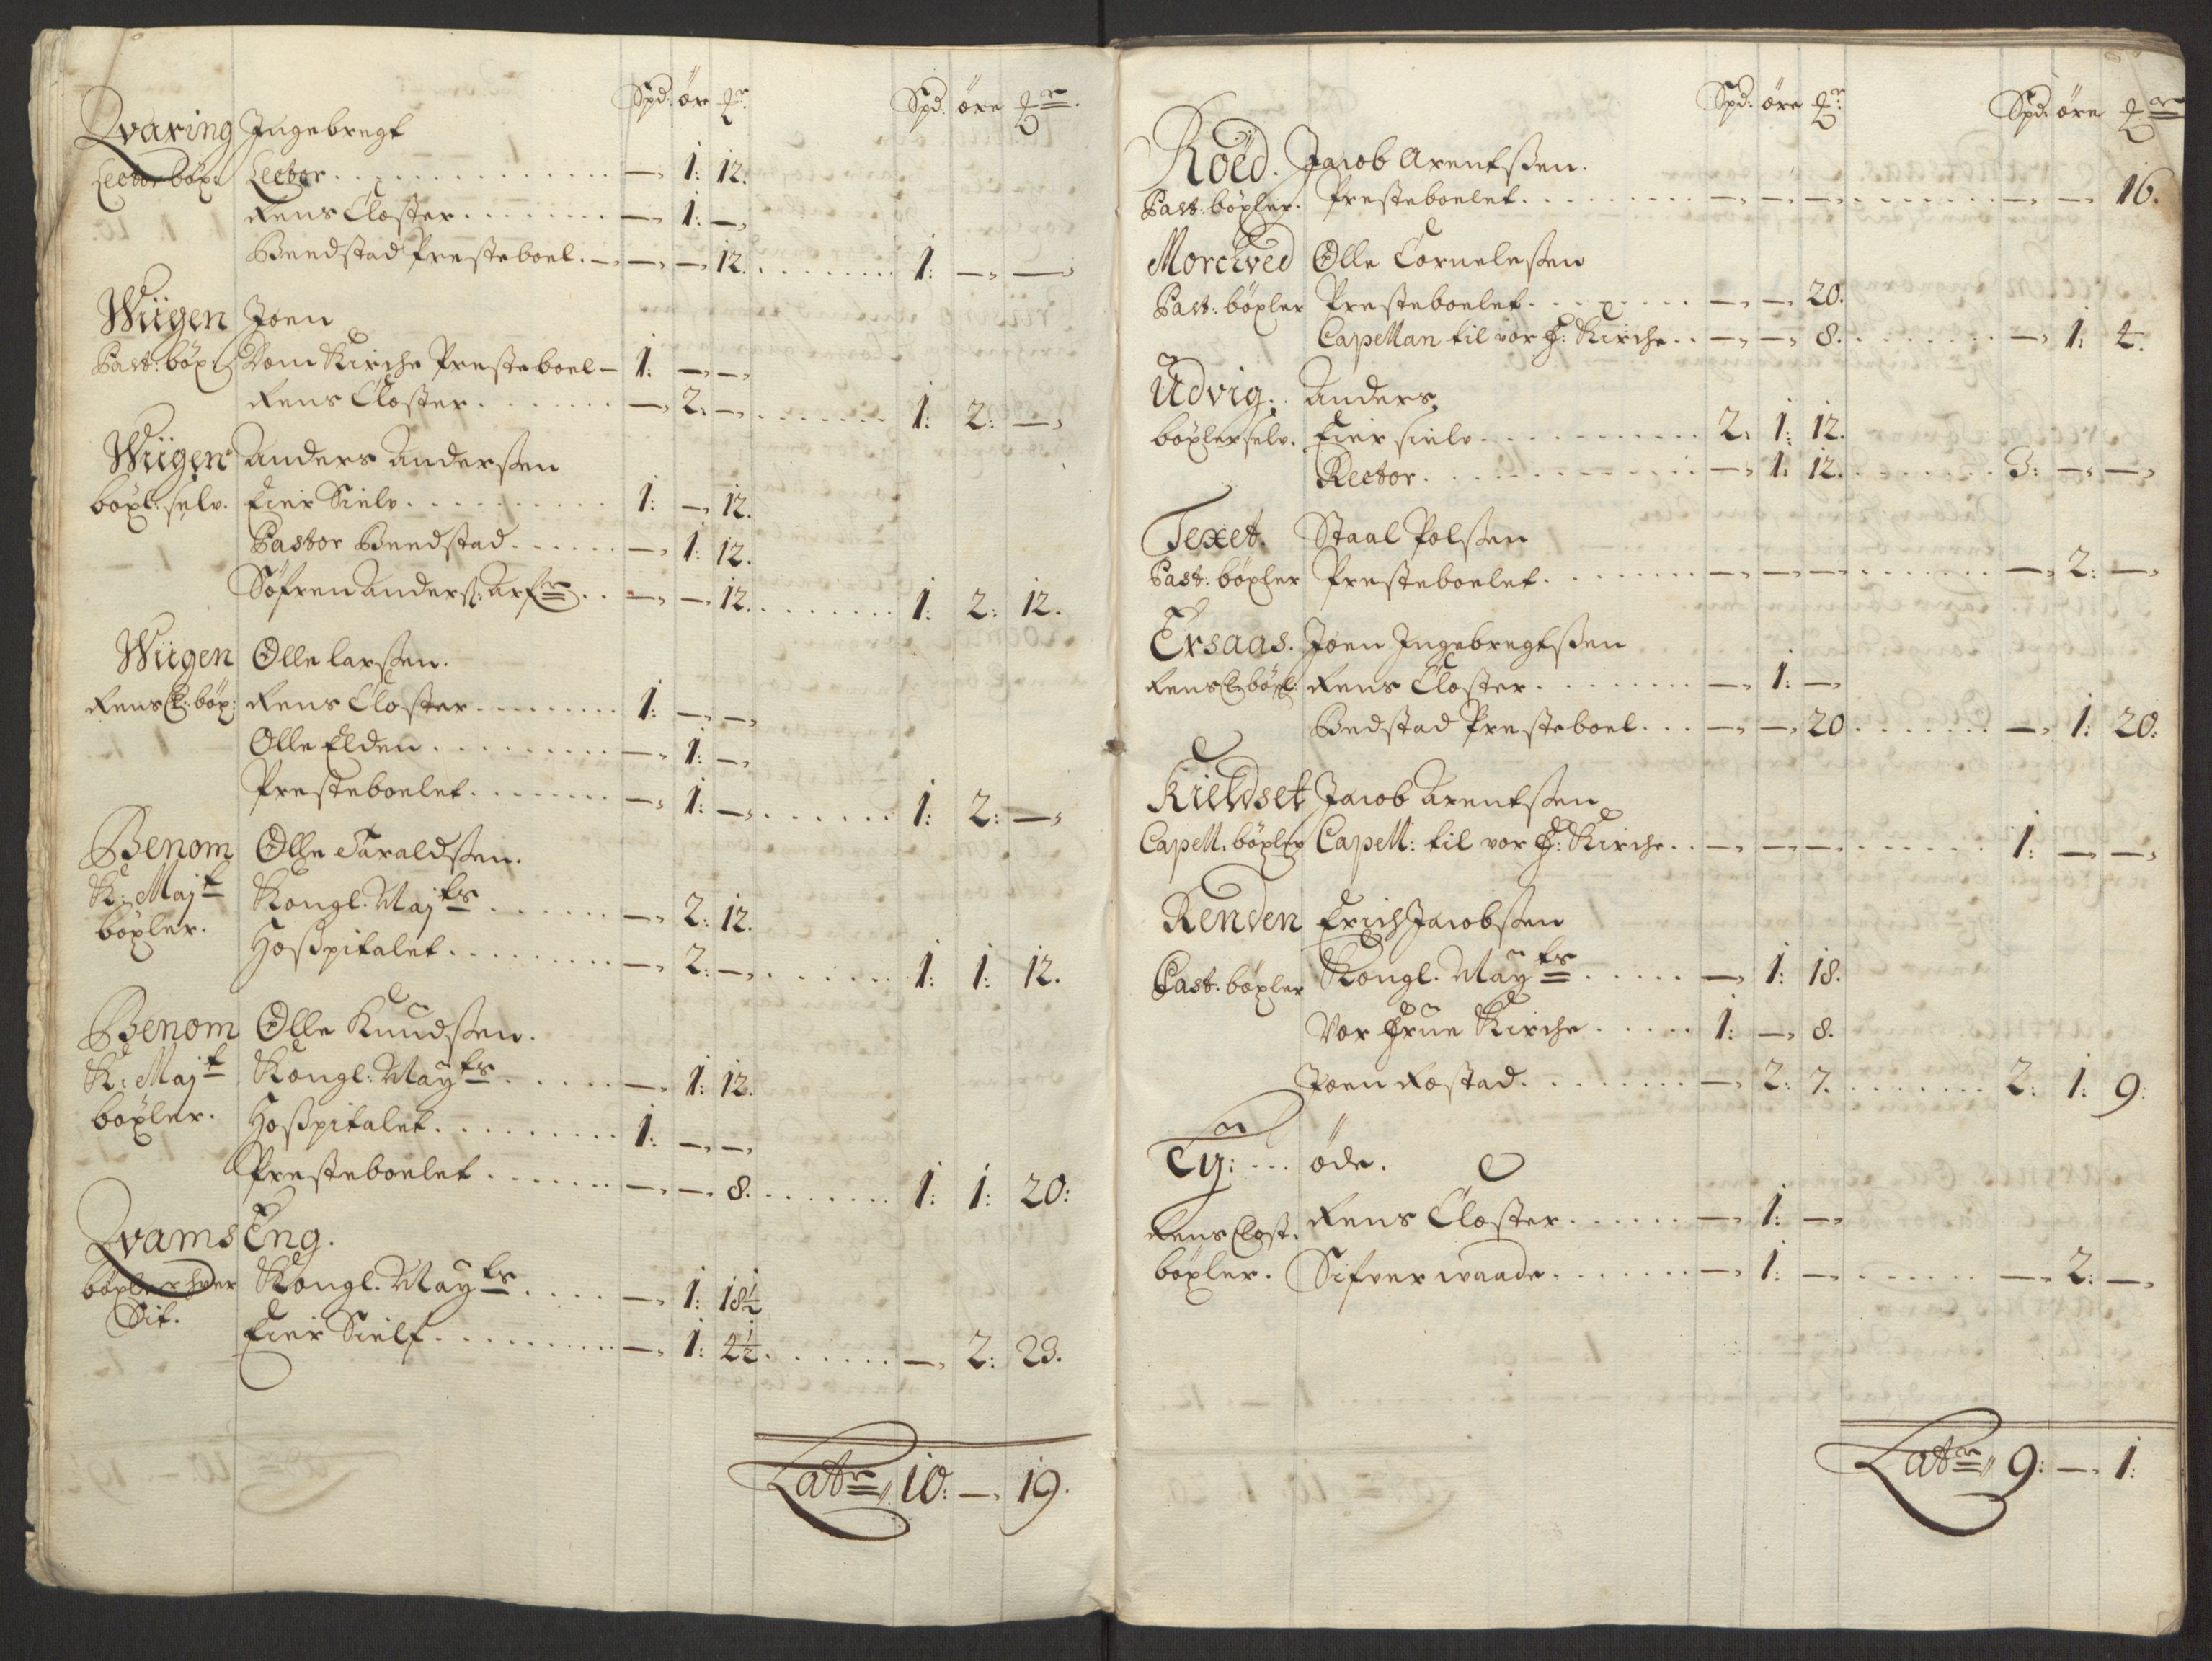 Spd: öre Spd. öre
Qvaring Ingebregt
Lector böx: Lector — 1: 12.
Rens Closter — 1: —
Beedstad Presteboel. — — 12. 1: — —
Wiigen Joen
Past: böxl Dom Kirche Presteboel — 1: — —
Rens Closter — 2. — 1: 2: —
Wiigen Anders Anderssen
böxl: selv. Eier Sielv 1: — 12.
Pastor Beedstad — 1: 12.
Söfren Anderss: — — 12. 1: 2: 12.
Wiigen Olle Larssen.
Rens Cl: böx: Rens Closter 1: — —
Olle Elden — 1: —
Presteboelet — 1: — 1: 2: —
Benom Olle Taraldssen.
K: Majt Kongl. Majts — 2: 12.
böxler. Hosspitalet — 2: — 1: 1: 12.
Benom Olle Knudssen.
K: Majt Kongl: Mayts — 1: 12.
böxler. Hosspitalet 1: — —
Presteboelet — — 8. 1: 1: 20:
Qvams Eng.
böxler hver Kongl. Mayts — 1: 18½
Sit. Eier Sielf — 1: 4½ — 2: 23.
Latr 10: — 19.
Spd: öre Spd: öre
Roed. Jacob Arentssen.
Past: böxler. Presteboelet — — — — — 16.
Morcived Olle Cornelessen
Past: böxler Presteboelet — — 20.
Capellan til vor F: Kirche — — 8. — 1: 4.
Udvig. Anders
böxler selv. Eier sielv 2: 1: 12.
Rector — 1: 12. 3: — —
Texet. Staal Polssen
Past: böxler Presteboelet — — — — 2: —
Ersaas. Joen Ingebregtssen
Rens Cl: böxl: Rens Closter — 1: —
Bedstad Presteboel — — 20 — 1: 20:
Kieldset Jacob Arentssen
Capell. böxler Capell: til vor F: Kirche — — — 1: — —
Renden Erich Jacobssen
Past: böxler Kongl. Mayts — 1: 18.
Vor Frue Kirche 1: — 8.
Joen Rostad — 2: 7. 2: 1: 9:
Ey: öde.
Rens Clost. Rens Closter — 1: —
böxler. Sifver waade — 1: — — 2: —
Latr 9: — 1: